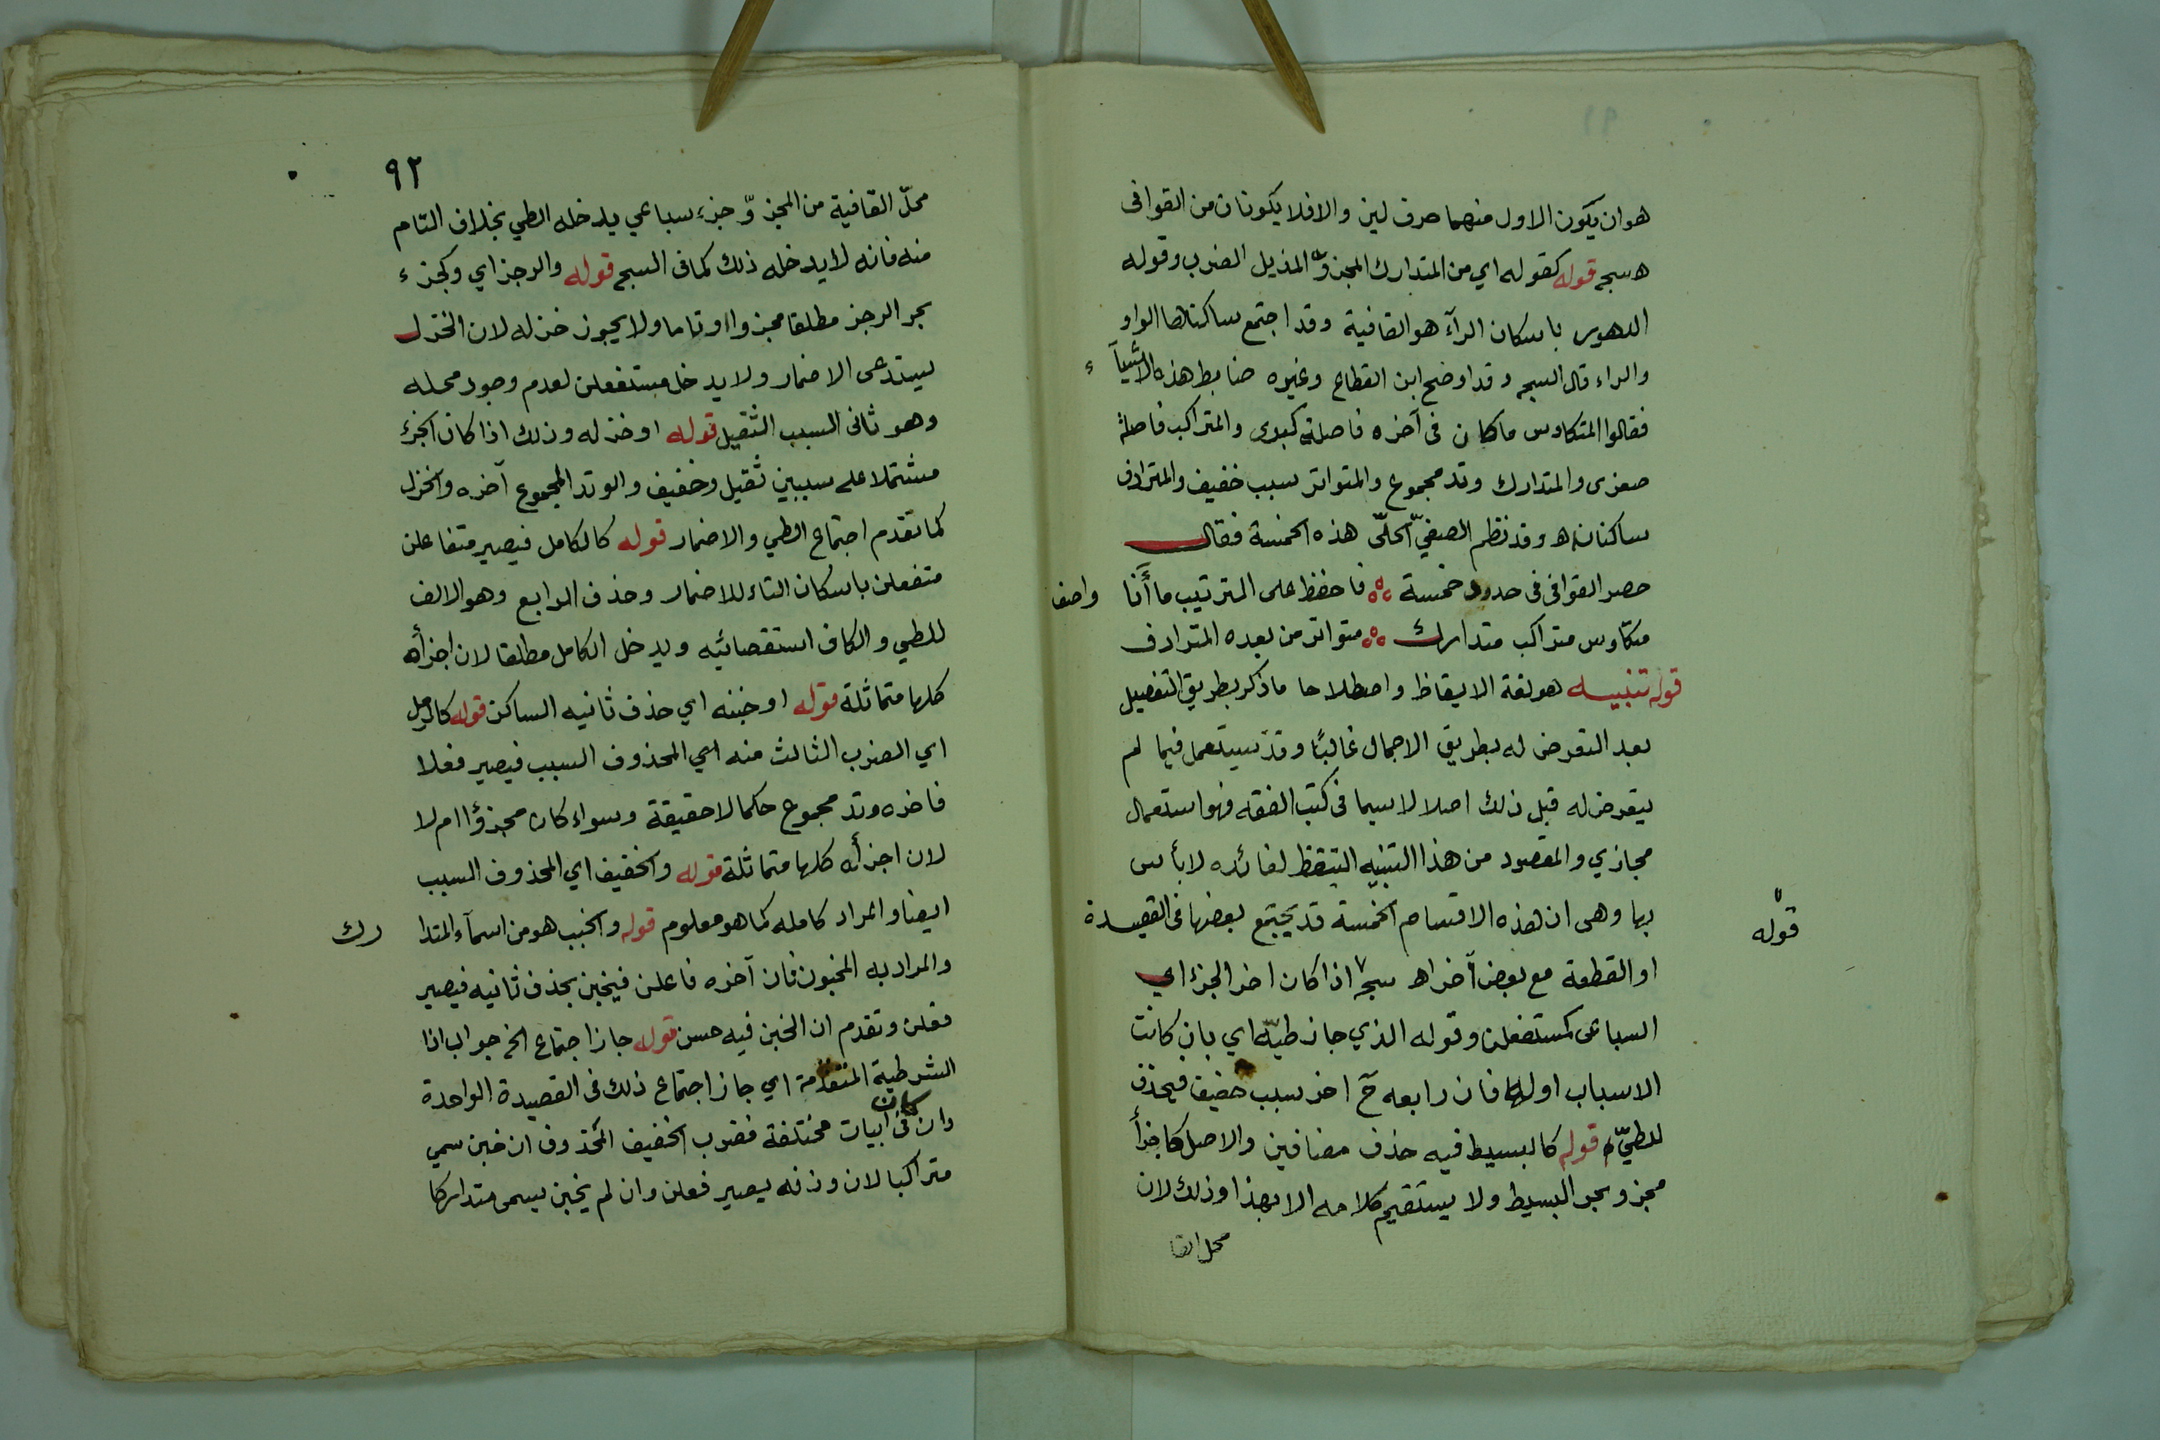 هو ان يكون الاول منهما حرف لين والا فلا يكونان من القوافى
ه سجم قوله كقوله اي من المتدارك المجزوّ المذيل الضرب وقوله
الدهور باسكان الرآء هو القافية وقد اجتمع ساكناها الواو
والراء قال السجم وقد اوضح ابن القطاع وغيره ضابط هذه الاشيآء
فقالوا المتكاوس ما كان فى آخره فاصلة كبرى والمتراكب فاصلة
صغرى والمتدارك وتد مجموع والمتواتر سبب خفيف والمترادف
ساكنان اه وقد نظم الصفيّ الحلّى هذه الخمسة فقال
حصر القوافى فى حدود خمسة فاحفظ على الترتيب ما أنا واصف
متكاوس متراكب متدارك متواتر من بعده المترادف
قوله تنبيه هو لغة الايقاظ واصطلاحا ما ذكر بطريق التفصيل
بعد التعرض له بطريق الاجمال غالبًا وقد يستعمل فيما لم
يتعرض له قبل ذلك اصلا لاسيما فى كتب الفقه فهو استعمال
مجازي والمقصود من هذا التنبيه التيقظ لفائده لا بأس
بها وهى ان هذه الاقسام الخمسة قد يجتمع بعضها فى القصيدة
قوله
او القطعة مع بعض آخر اه سجم اذا كان اخر الجزء اي
السباعى كمستفعلن وقوله الذي جاز طيّه اي بان كانت
الاسباب اولها فان رابعه ح اخر سبب خفيف فيحذف
للطيّ م قوله كالبسيط فيه حذف مضافين والاصل كاجزأ
مجزو بحر البسيط ولا يستقيم كلامه الا بهذا وذلك لان
محل القا
٩٢
محلّ القافية من المجزوّ جزء سباعي يدخله الطي بخلاف التام
منه فانه لا يدخله ذلك كما فى السجم قوله والرجز اي وكجزء
بحر الرجز مطلقا مجزوا او تاما ولا يجوز خزله لان الخزل
يستدعى الاضمار ولا يدخل مستفعلن لعدم وجود محله
وهو ثانى السبب الثقيل قوله او خزله وذلك اذا كان الجزء
مشتملا على سببين ثقيل وخفيف والوتد المجموع آخره والخزل
كما تقدم اجتماع الطي والاضمار قوله كالكامل فيصير متفاعلن
متفعلن باسكان التاء للاضمار وحذف الرابع وهو الالف
للطي والكاف استقصائيه ويدخل الكامل مطلقا لان اجزأه
كلها متماثلة قوله او خبنه اي حذف ثانيه الساكن قوله كالرمل
اي الضرب الثالث منه اي المحذوف السبب فيصير فعلا
فاخره وتد مجموع حكما لا حقيقة وسواء كان مجزؤا ام لا
لان اجزأه كلها متماثلة قوله والخفيف اي المحذوف السبب
ايضا والمراد كامله كما هو معلوم قوله والخبب هو من اسمآء المتدا رك
والمراد به المخبون فان آخره فاعلن فيخبن بحذف ثانيه فيصير
فعلن وتقدم ان الخبن فيه حسن قوله جاز اجتماع الخ جواب اذا
الشرطية المتقدمة اي جاز اجتماع ذلك فى القصيدة الواحدة
وان كان فى ابيات مختلفة فضرب الخفيف المحذوف ان خبن سمي
متراكبا لان وزنه يصير فعلن وان لم يخبن يسمى متداركا